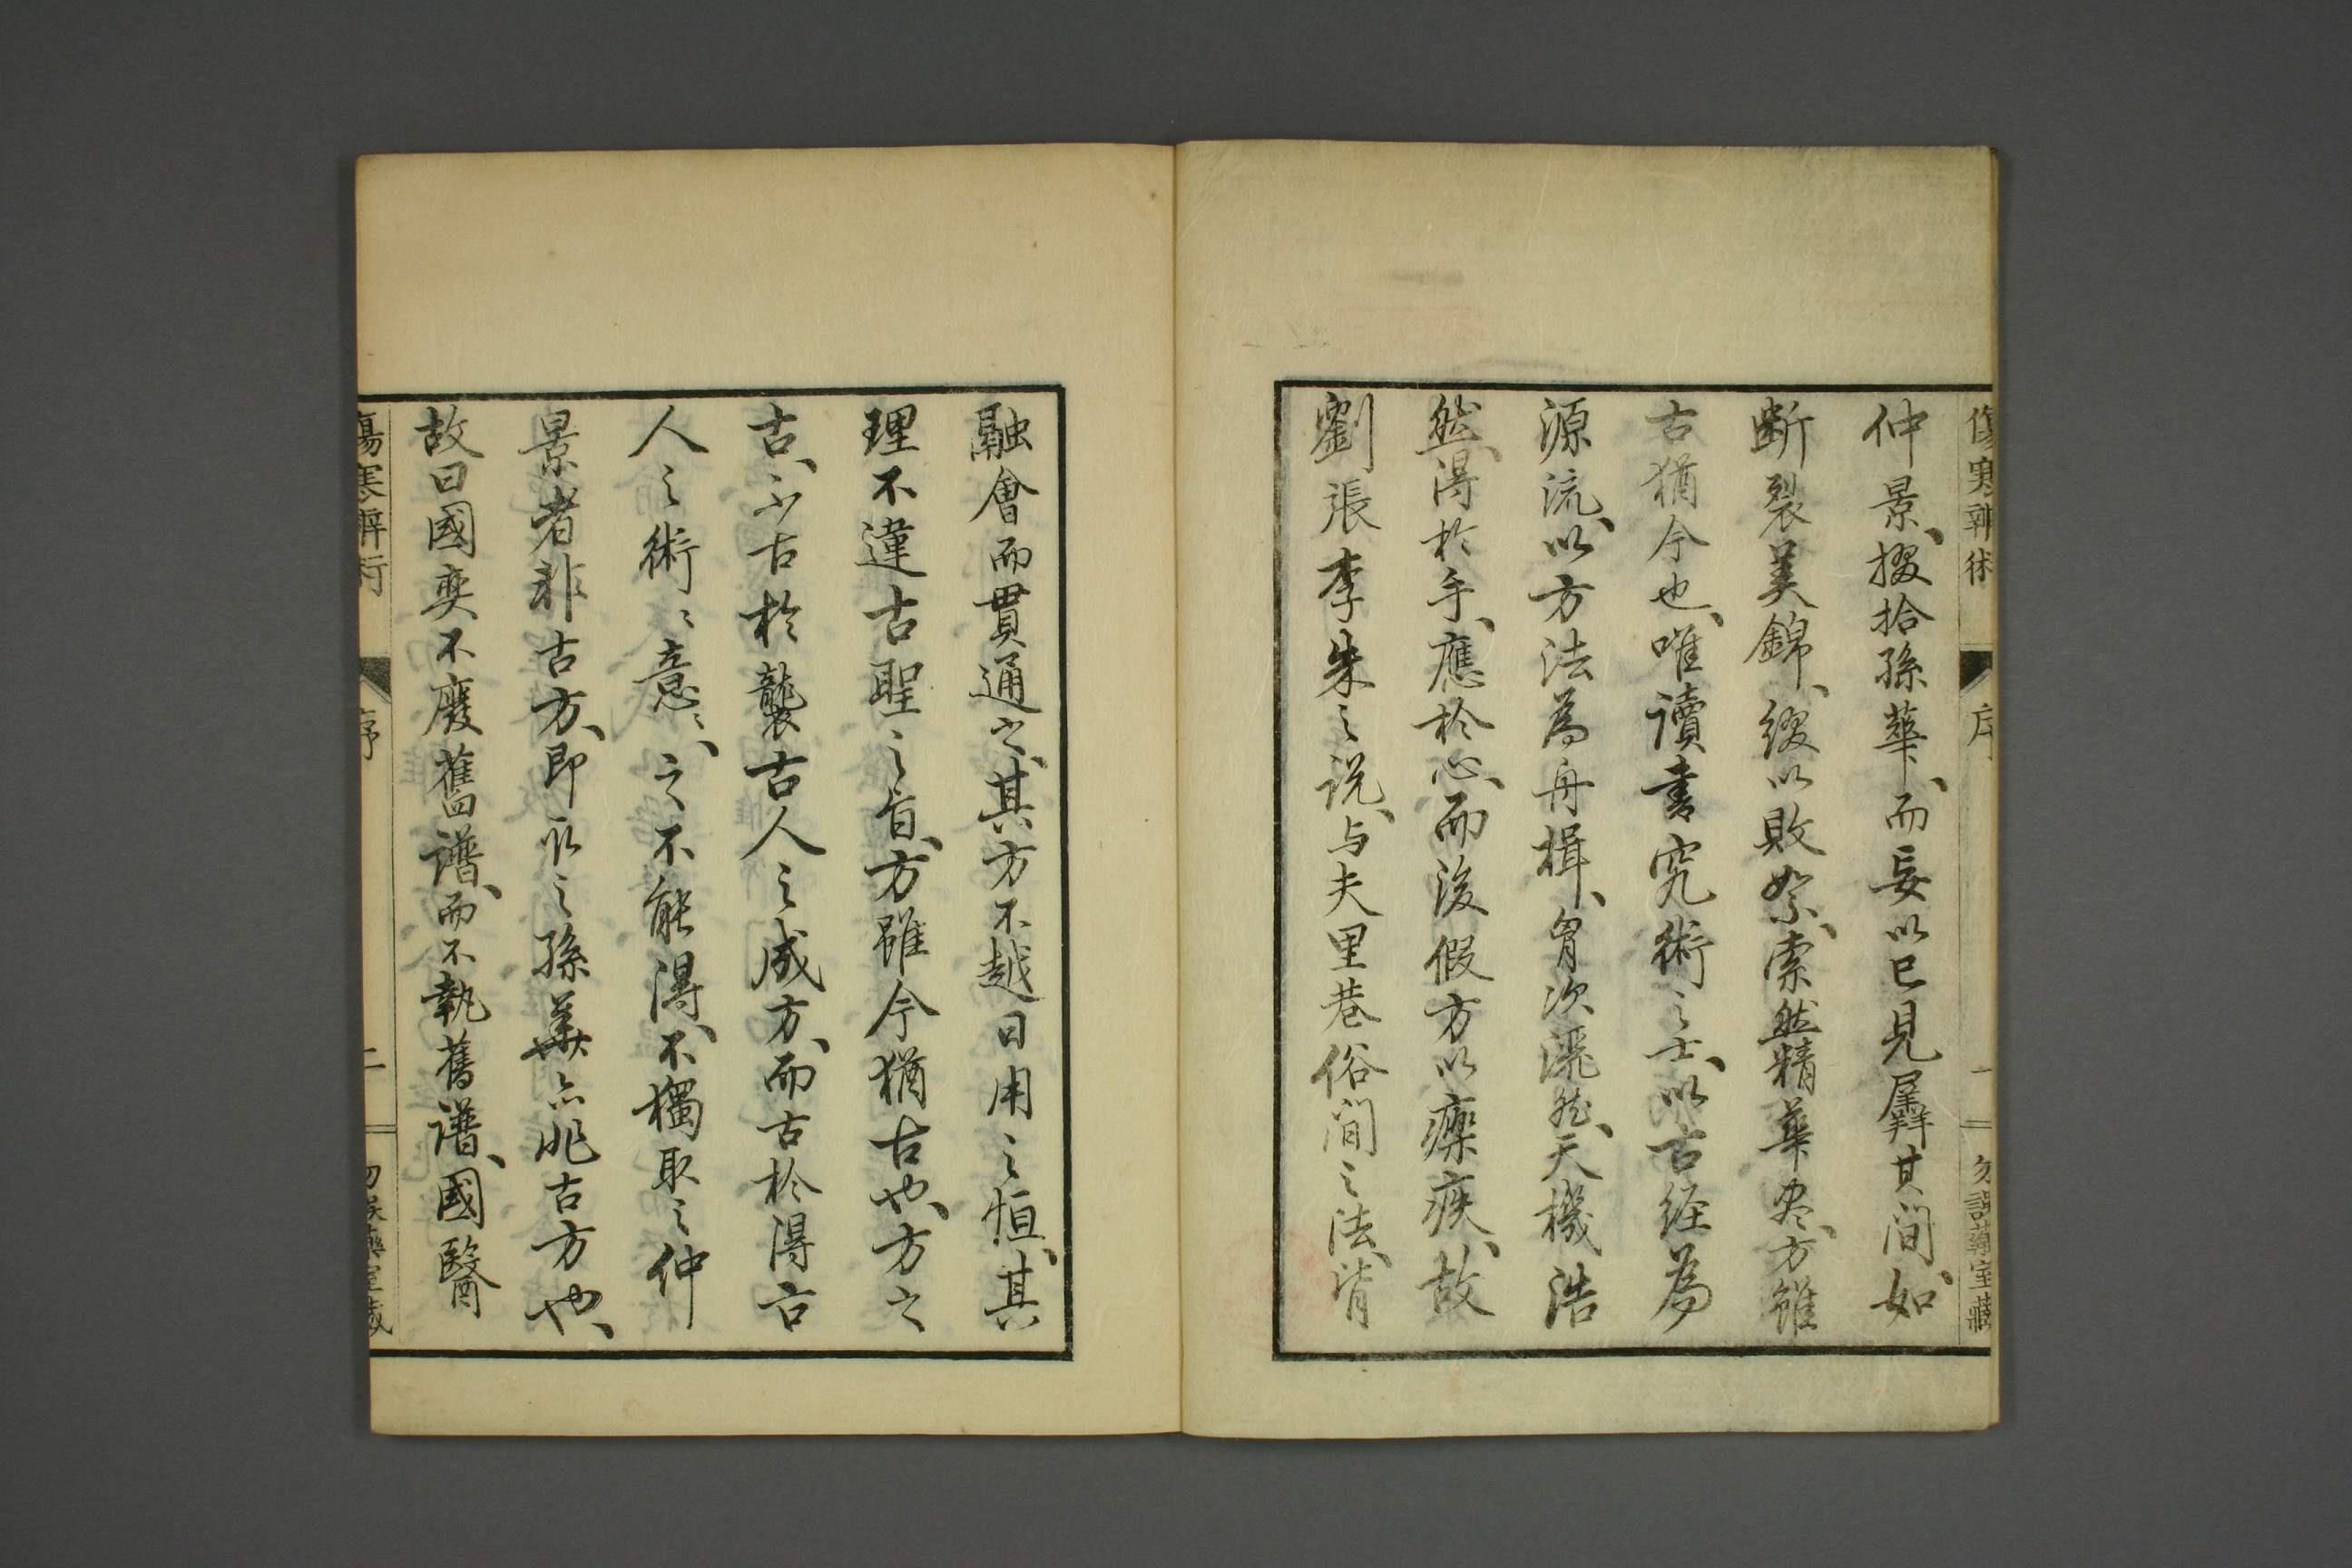 傷寒辨術 序 一 勿誤藥室藏
仲景、掇拾孫華、而妄以已見羼其間、如
斷裂美錦、綴以敗絮、索然精華尽、方雖
古猶今也、唯讀書究術之士、以古経為
源流、以方法為舟楫、胷次洒然、天機浩
然、得於手、應於心、而後假方以療疾、故
劉張李朱之説、与夫里巷俗間之法、皆
融會而貫通之、其方不越日用之恒、其
理不違古聖之旨、方雖今猶古也、方之
古、不古於襲古人之成方、而古於得古
人之術、〻意〻、之不能得、不獨取之仲
景者非古方、即取之孫華亦非古方也、
故曰國奕不廢舊譜、而不執舊譜、國醫
傷寒辨術 序 二 勿誤藥室藏